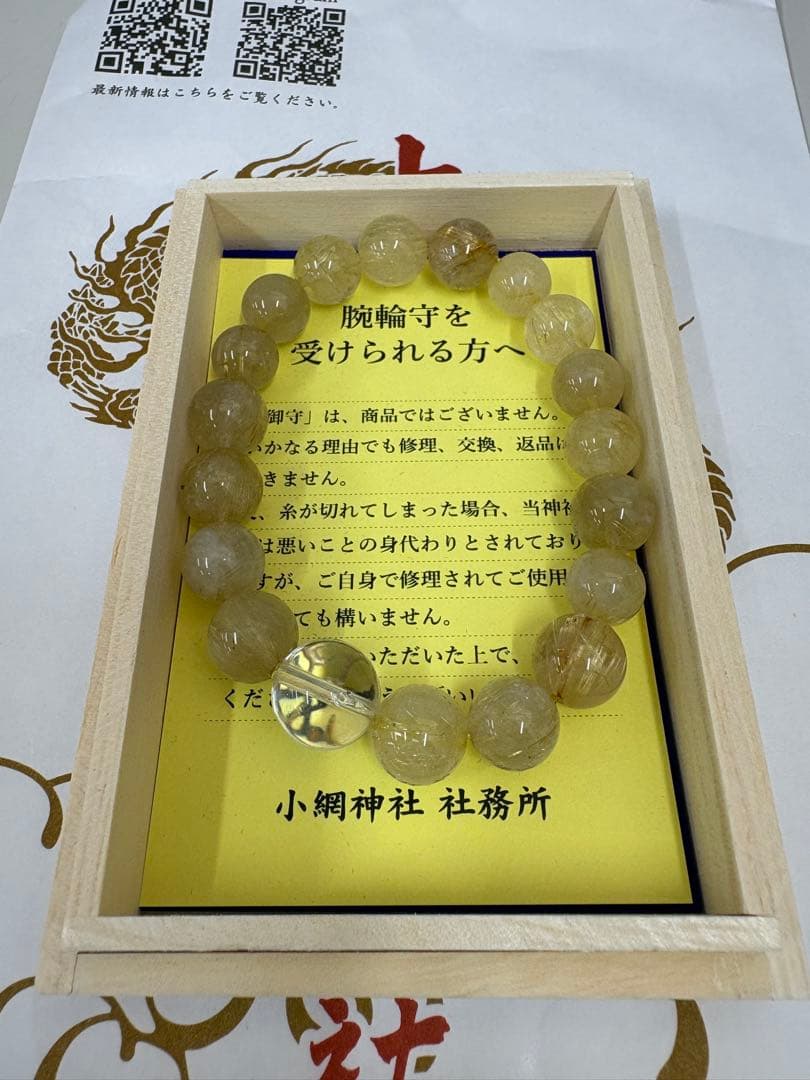 最新情報はこちらをご覧ください。
腕輪守を
受けられる方へ
御守」は、商品ではございません。
いかなる理由でも修理、交換、返品は
きません。
糸が切れてしまった場合、当神社
は悪いことの身代わりとされており
すが、ご自身で修理されてご使用
ても構いません。
いただいた上で、
くだ
小網神社 社務所
社